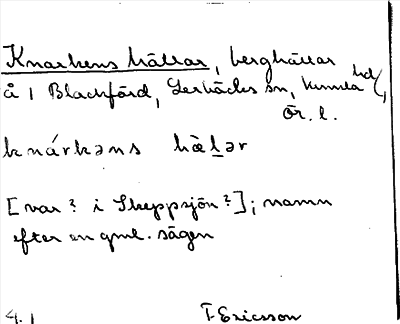 Knarkens hällar, berghällar
å 1 Blackfård, Lerbäcks sn, Kumla hd,
Ör. l.
knárkəns hàl̲ər
[var? i Skeppsjön?]; namn
efter en gml. sägen
4.1 T Ericsson